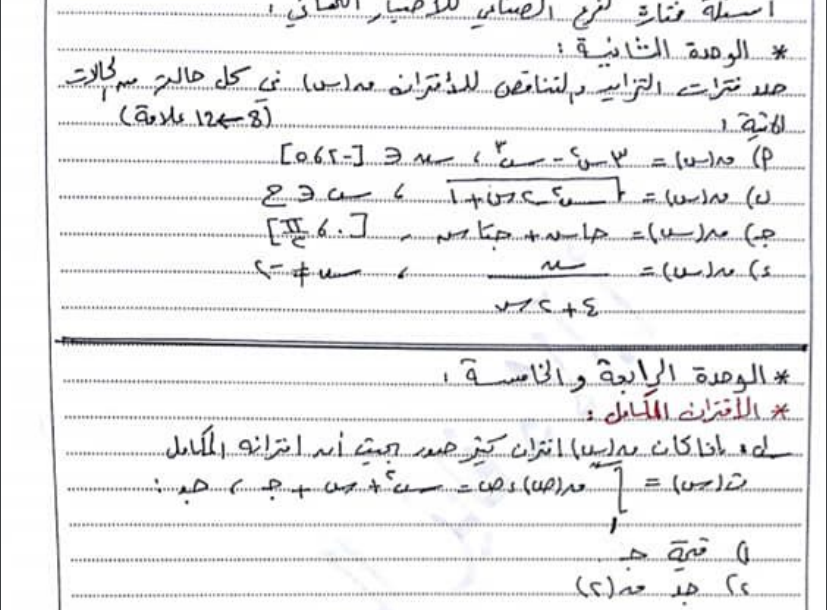 أسئلة مختارة لفرع الصناعي للاختبار النهائي :
* الوحدة الثانية :
حدد فترات التزايد والتناقص للاقتران ق(س) في كل حالة من الحالات
الآتية : (8 ← 12 علامة)
أ) ق(س) = ٣س٢ - س٣ ، س ∈ [-٢، ٥]
ب) ق(س) = √س٢-٢س+١ ، س ∈ ح
جـ) ق(س) = جاس + جتاس ، [٠ ، π/٢]
د) ق(س) = س / ٤+٢س ، س ≠ -٢
* الوحدة الرابعة والخامسة :
* الاقتران المكامل :
س١: إذا كان ق(س) اقتران كثير حدود بحيث أن اقترانه المكامل
ت(س) = ∫ ق(ص) دص = س٢ + س + جـ ، جد :
١
١) قيمة جـ
٢) جد ق(٢)